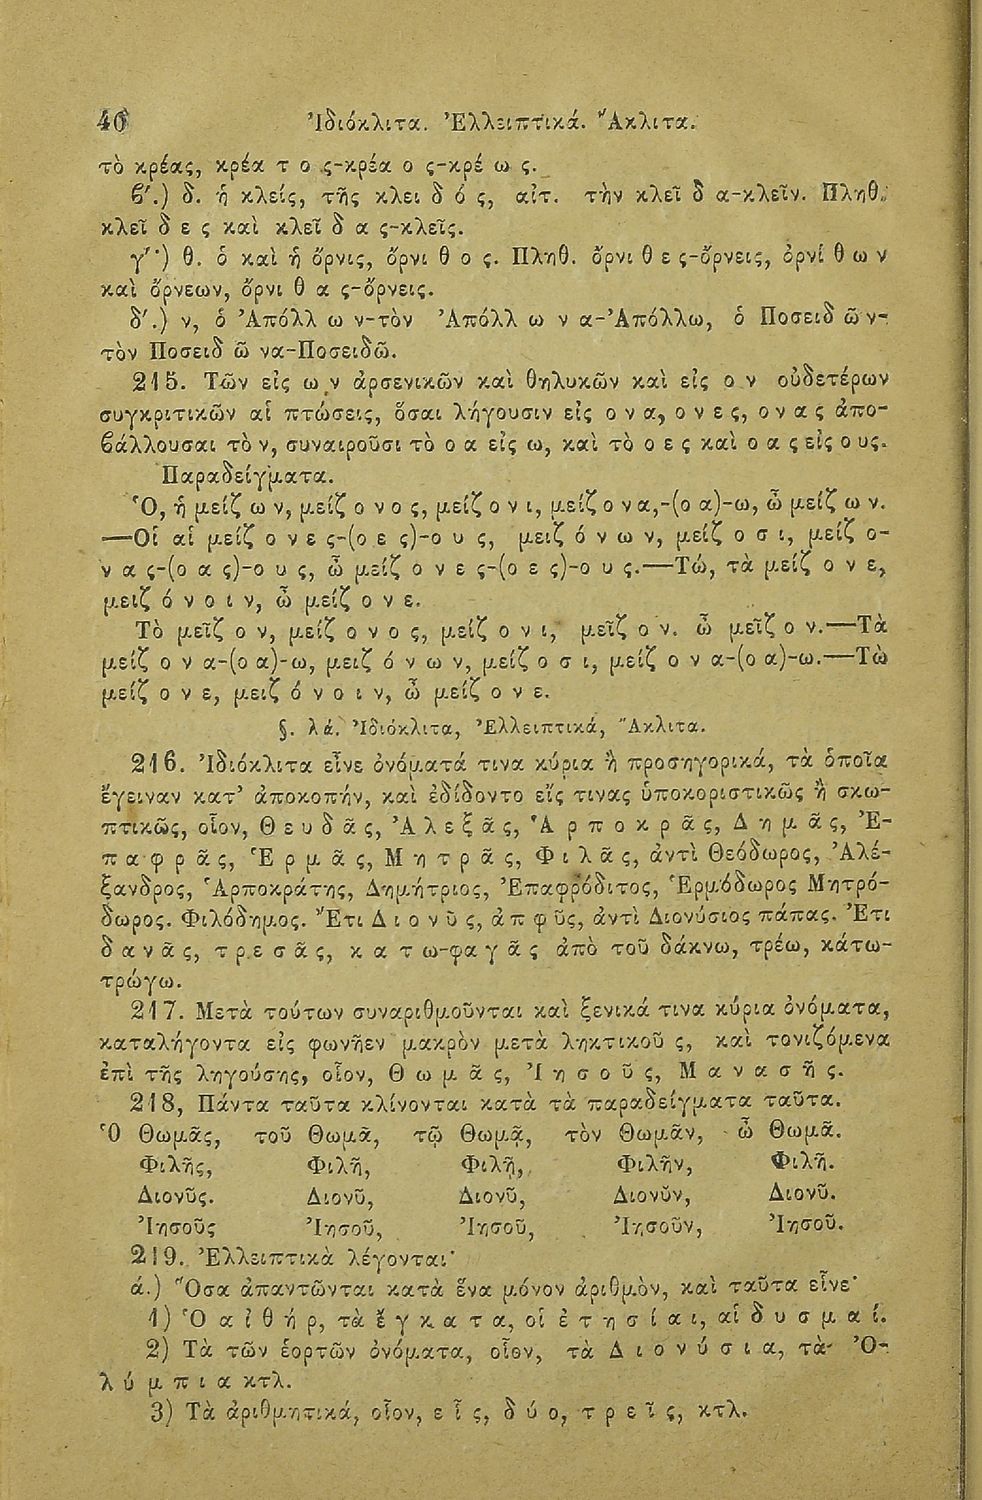 46 Ἰδιόκλιτα. Ἐλλειπτικά. Ἄκλιτα.
τὸ κρέας, κρέα τ ο ς-κρέα ο ς-κρέ ω ς.
ϐ´.) δ. ἡ κλείς, τῆς κλει δ ό ς, αἰτ. τὴν κλεῖ δ α-κλεῖν. Πληθ.
κλεῖ δ ε ς καὶ κλεῖ δ α ς-κλεῖς.
γ´) θ. ὁ καὶ ἡ ὄρνις, ὄρνι θ ο ς. Πληθ. ὄρνι θ ε ς-ὄρνεις, ὀρνί θ ω ν
καὶ ὄρνεων, ὄρνι θ α ς-ὄρνεις.
δ´.) ν, ὁ Ἀπόλλ ω ν-τὸν Ἀπόλλ ω ν α-Ἀπόλλω, ὁ Ποσειδ ῶ ν-
τὸν Ποσειδ ῶ να-Ποσειδῶ.
215. Τῶν εἰς ω ν ἀρσενικῶν καὶ θηλυκῶν καὶ εἰς ο ν οὐδετέρων
συγκριτικῶν αἱ πτώσεις, ὅσαι λήγουσιν εἰς ο ν α, ο ν ε ς, ο ν α ς ἀπο-
ϐάλλουσαι τὸ ν, συναιροῦσι τὸ ο α εἰς ω, καὶ τὸ ο ε ς καὶ ο α ς εἰς ο υς.
Παραδείγματα.
Ὁ, ἡ μείζ ω ν, μείζ ο ν ο ς, μείζ ο ν ι, μείζ ο ν α,-(ο α)-ω, ὦ μείζ ω ν.
—Οἱ αἱ μείζ ο ν ε ς-(ο ε ς)-ο υ ς, μειζ ό ν ω ν, μείζ ο σ ι, μείζ ο-
ν α ς-(ο α ς)-ο υ ς, ὦ μείζ ο ν ε ς-(ο ε ς)-ο υ ς.—Τώ, τὰ μείζ ο ν ε,
μειζ ό ν ο ι ν, ὦ μείζ ο ν ε.
Τὸ μεῖζ ο ν, μείζ ο ν ο ς, μείζ ο ν ι, μεῖζ ο ν. ὦ μεῖζ ο ν.—Τὰ
μείζ ο ν α-(ο α)-ω, μειζ ό ν ω ν, μείζ ο σ ι, μείζ ο ν α-(ο α)-ω.—Τὼ
μείζ ο ν ε, μειζ ό ν ο ι ν, ὦ μείζ ο ν ε.
§. λά. Ἰδιόκλιτα, Ἐλλειπτικά, Ἄκλιτα.
216. Ἰδιόκλιτα εἶνε ὀνόματά τινα κύρια ἢ προσηγορικά, τὰ ὁποῖα
ἔγειναν κατ᾽ ἀποκοπήν, καὶ ἐδίδοντο εἴς τινας ὑποκοριστικῶς ἢ σκω-
πτικῶς, οἷον, Θ ε υ δ ᾶ ς, Ἀ λ ε ξ ᾶ ς, Ἁ ρ π ο κ ρ ᾶ ς, Δ η μ ᾶ ς, Ἐ-
π α φ ρ ᾶ ς, Ἑ ρ μ ᾶ ς, Μ η τ ρ ᾶ ς, Φ ι λ ᾶ ς, ἀντὶ Θεόδωρος, Ἀλέ-
ξανδρος, Ἁρποκράτης, Δημήτριος, Ἐπαφρόδιτος, Ἑρμόδωρος Μητρό-
δωρος. Φιλόδημος. Ἔτι Δ ι ο ν ῦ ς, ἀ π φ ῦς, ἀντὶ Διονύσιος πάπας. Ἔτι
δ α ν ᾶ ς, τ ρ ε σ ᾶ ς, κ α τ ω-φα γ ᾶ ς ἀπὸ τοῦ δάκνω, τρέω, κάτω-
τρώγω.
217. Μετὰ τούτων συναριθμοῦνται καὶ ξενικά τινα κύρια ὀνόματα,
καταλήγοντα εἰς φωνῆεν μακρὸν μετὰ ληκτικοῦ ς, καὶ τονιζόμενα
ἐπὶ τῆς ληγούσης, οἷον, Θ ω μ ᾶ ς, Ἰ η σ ο ῦ ς, Μ α ν α σ ῆ ς.
218, Πάντα ταῦτα κλίνονται κατὰ τὰ παραδείγματα ταῦτα.
Ὁ Θωμᾶς, τοῦ Θωμᾶ, τῷ Θωμᾷ, τὸν Θωμᾶν, ὦ Θωμᾶ.
Φιλῆς, Φιλῆ, Φιλῇ, Φιλῆν, Φιλῆ.
Διονῦς. Διονῦ, Διονῦ, Διονῦν, Διονῦ.
Ἰησοῦς Ἰησοῦ, Ἰησοῦ, Ἰησοῦν, Ἰησοῦ.
219. Ἐλλειπτικὰ λέγονται·
ά.) Ὅσα ἀπαντῶνται κατὰ ἕνα μόνον ἀριθμὸν, καὶ ταῦτα εἶνε·
1) Ὁ α ἰ θ ή ρ, τὰ ἔ γ κ α τ α, οἱ ἐ τ η σ ί α ι, αἱ δ υ σ μ α ί.
2) Τὰ τῶν ἑορτῶν ὀνόματα, οἷον, τὰ Δ ι ο ν ύ σ ι α, τὰ Ὀ-
λ ύ μ π ι α κτλ.
3) Τὰ ἀριθμητικά, οἷον, ε ἷ ς, δ ύ ο, τ ρ ε ῖ ς, κτλ.